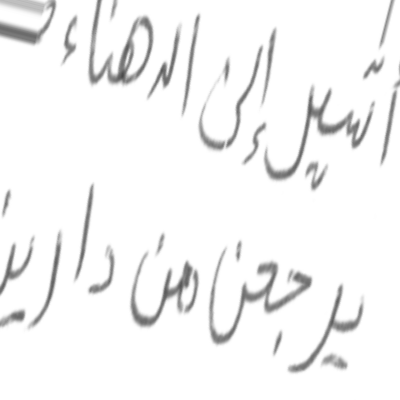 أسيل إلى الدهناء
يرجعن من دارين